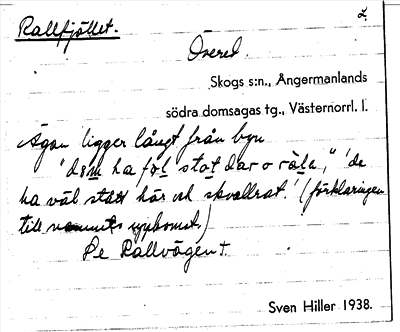 Rallfjället. 2.
Övered.
Skogs s:n., Ångermanlands
södra domsagas tg., Västernorrl. l.
Ägan ligger långt från byn
"dem ha fọl stọt dar o rạla", 'de
ha väl stått här och skvallrat.' (förklaringen
till namnets uppkomst)
Se Rallvägen †.
Sven Hiller 1938.